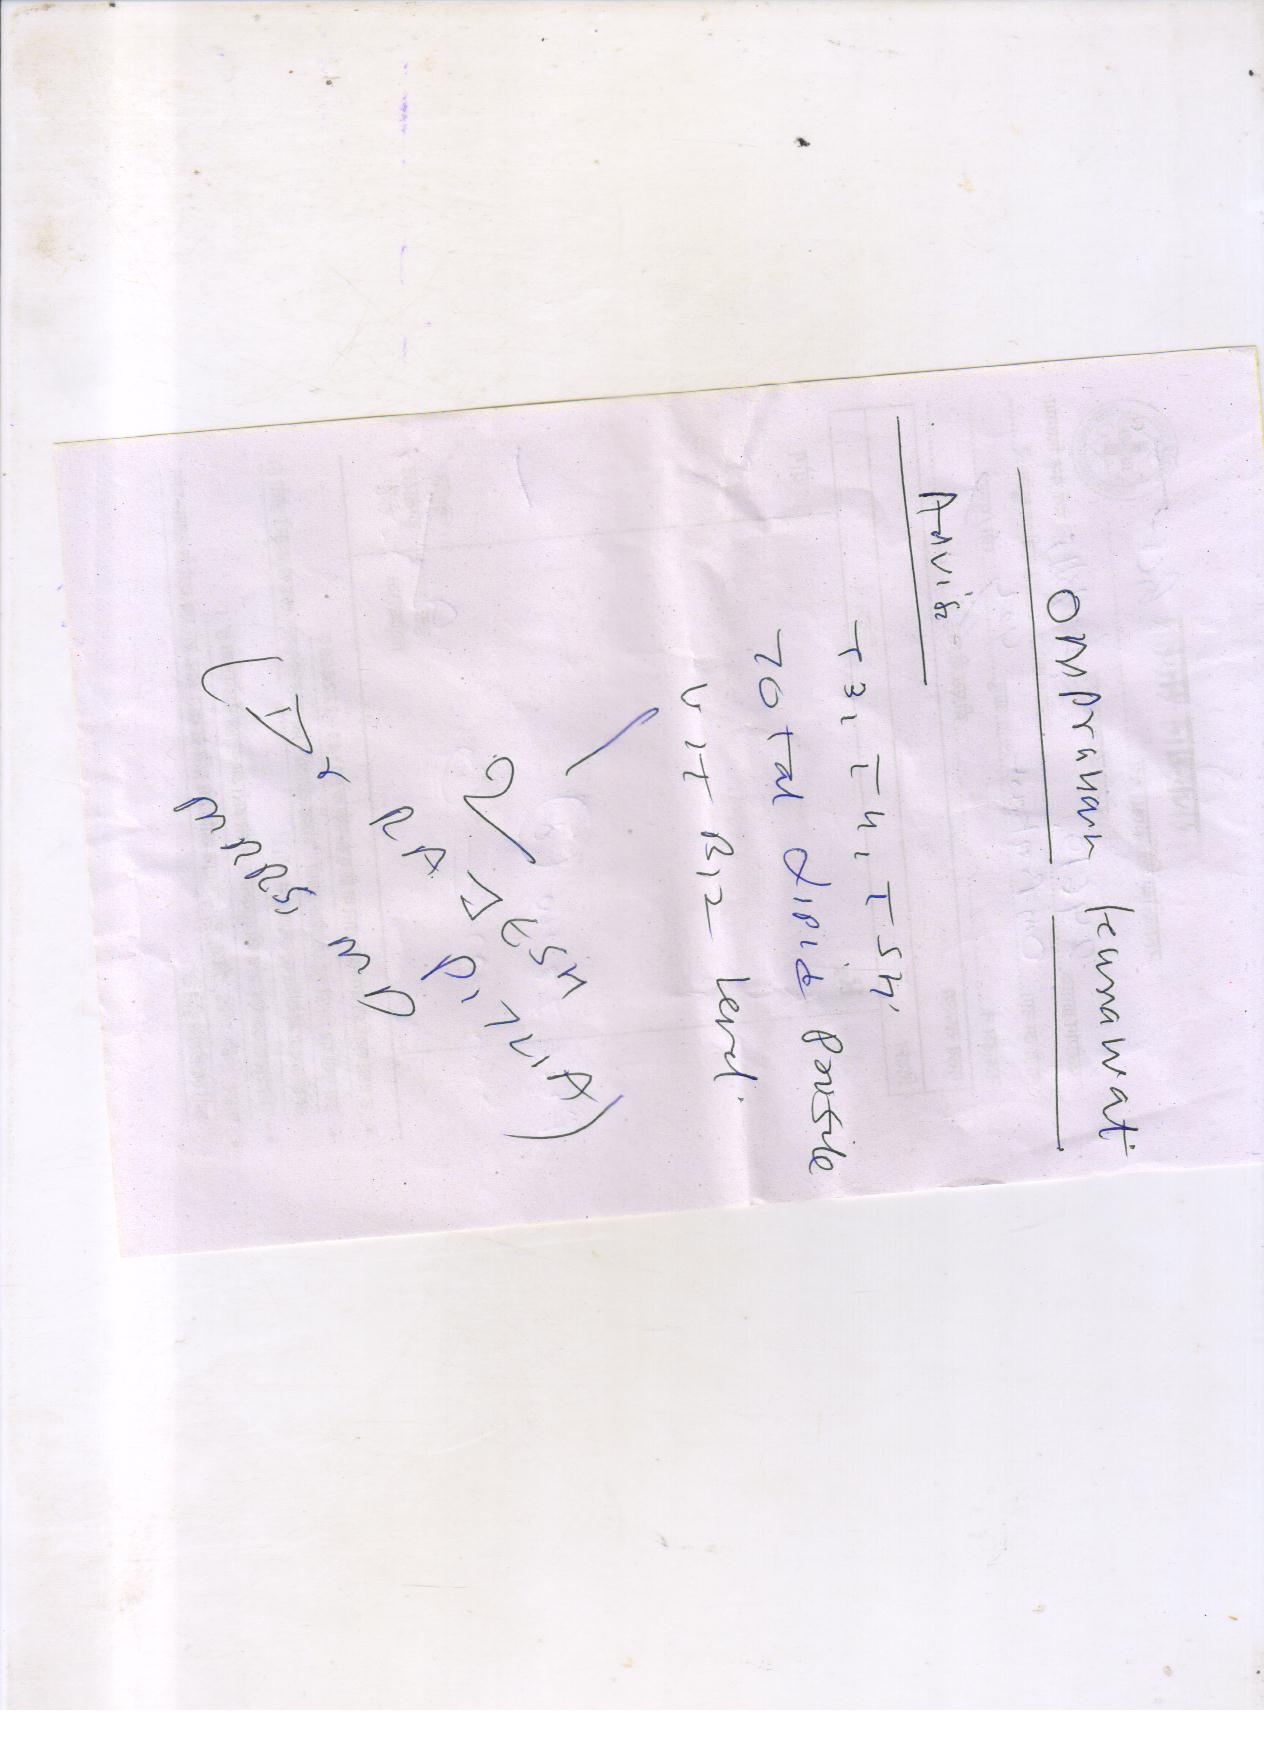 Omprakash Kumawat
Advise
T3, T4, TSH
Total Lipid Profile
Vit B12 Level
(Dr RAJESH
MBBS, MD